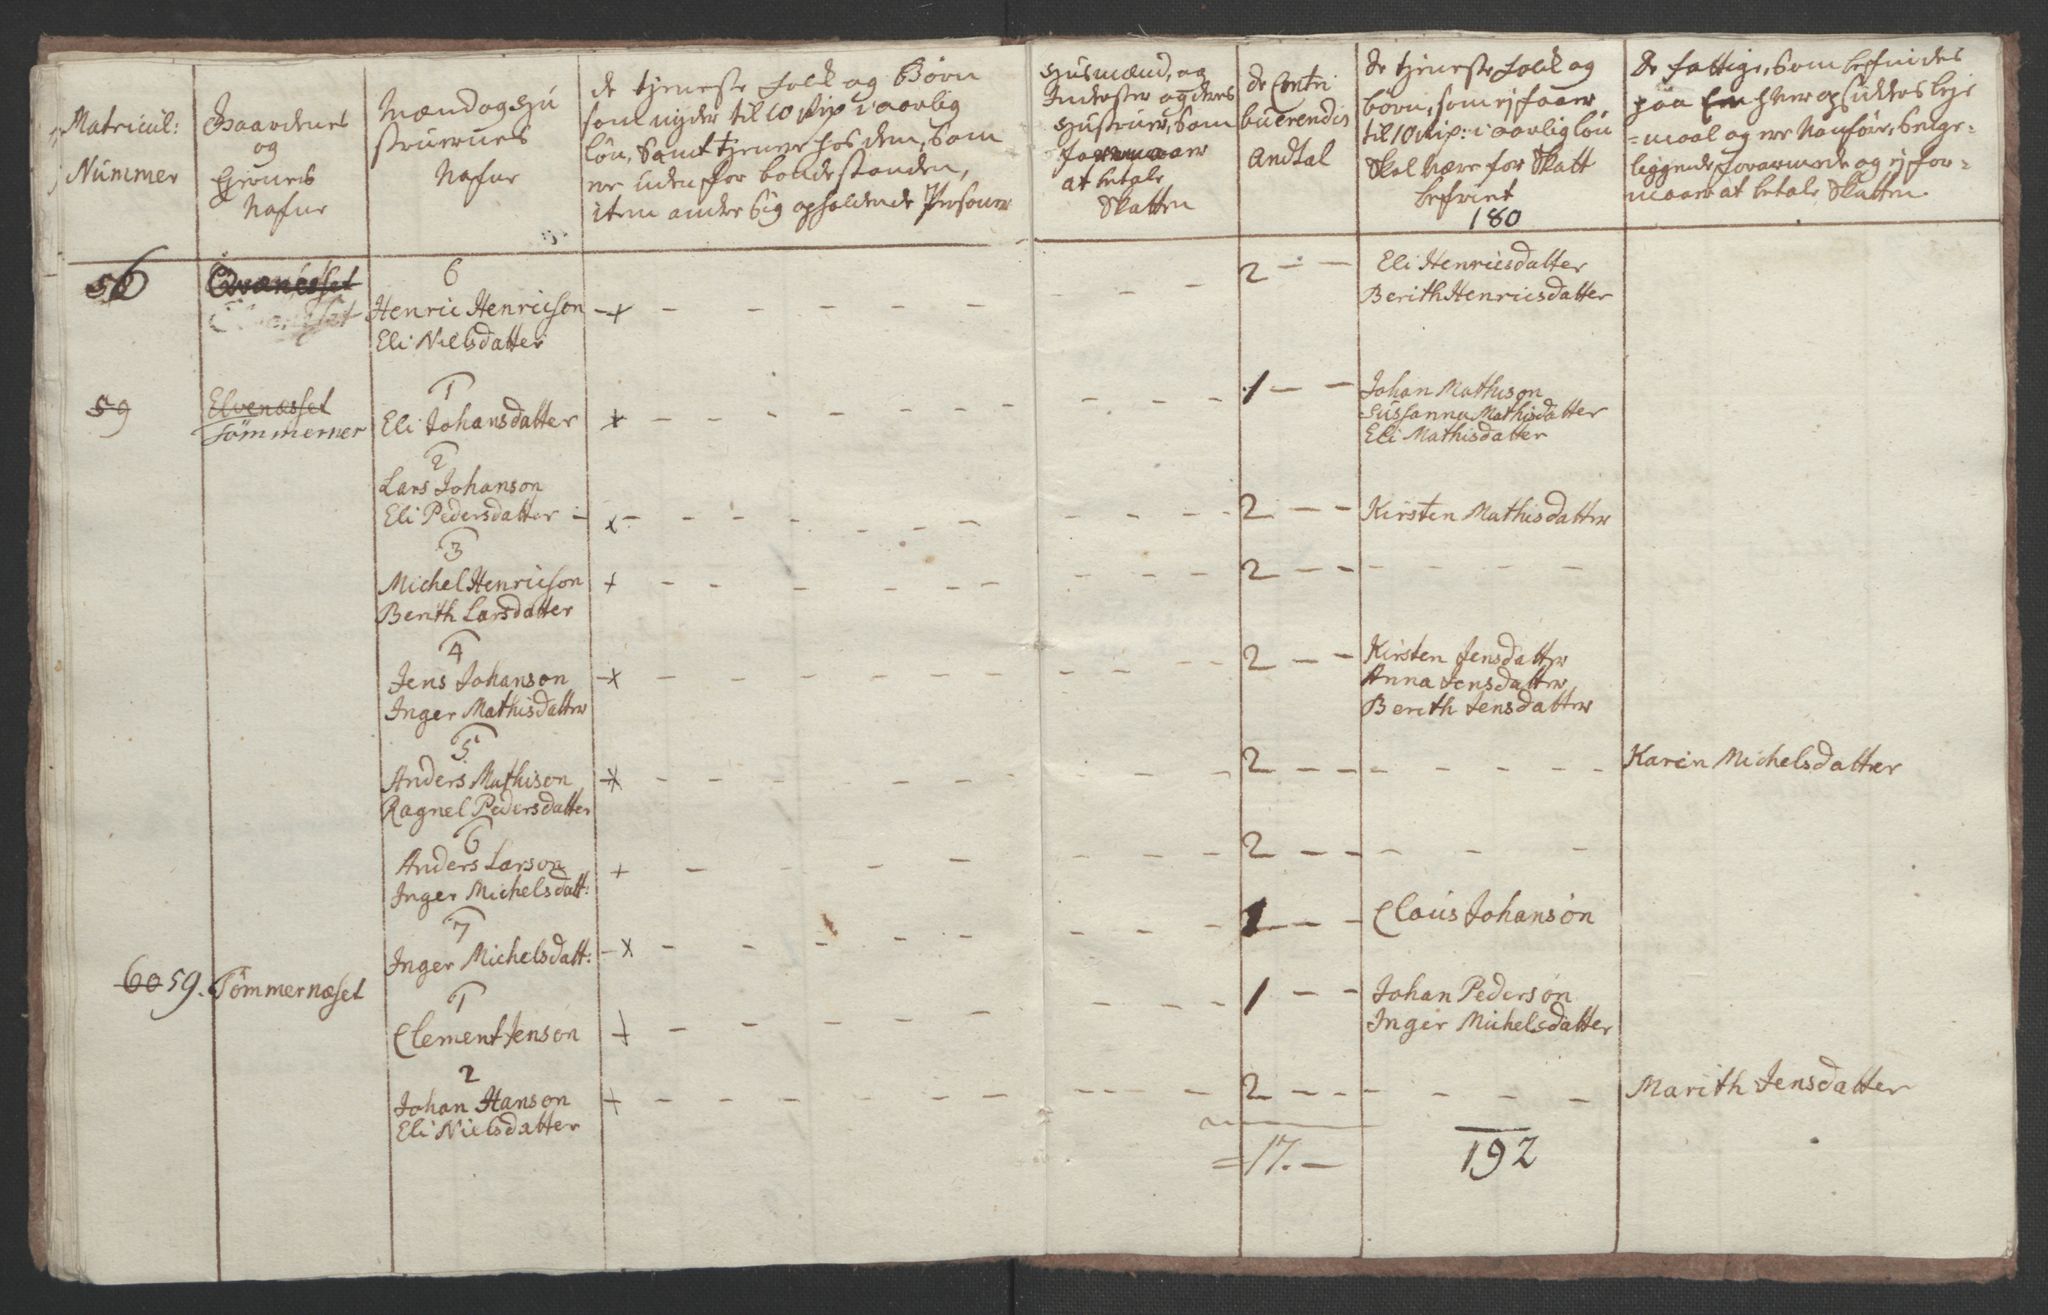 Matricul:
Nummer
Gaardenes
og
Ejernes
Nafne
Mænd og Hu
struernes
Nafne
de tjeneste Folk og Børn
som nyder til 10 Rdr i aarlig
løn, Samt tjener hos dem, som
ere uden for bondestanden,
item andre Sig opholdende Persone
Husmænd, og
Inderster og deres
Hustruer, Som
Formaaer
at betale
Skatten
de Contri
buerendis
Andtal
de tjeneste Folk og
børn, som ej faaer
til 10 Rdr: i aarlig løn
Skal være for Skatt
befriet
180
De fattige, Som befindes
paa Enhver opsidders leje
=maal og ere Vanføre, Senge-
liggende forarmede og ej for-
maaer at betale Skatten.
56
Qvænesset
6
Henric Henricson
Eli Nielsdatter
2
Eli Henricsdatter
Berith Henricsdatter
59
Elvenæsset
Tömmerner
1
Eli Johansdatter
1
Johan Mathison
Sussanna Mathisdatter
Eli Mathisdatter
2
Lars Johanson
Eli Pedersdatter
2
Kirsten Mathisdatter
3
Michel Henricson
Berith Larsdatter
2
4
Jens Johanson
Inger Mathisdatter
2
Kirsten Jensdatter
Anna Jensdatter
Berith Jensdatter
5
Anders Mathison
Ragnel Pedersdatter
2
Karen Michelsdatter
6
Anders Larson
Inger Michelsdatt:
2
7
Inger Michelsdatt:
1
Claus Johanson
60 59. Tömmernæset
1
Clement Jenson
1
Johan Pederson
Inger Michelsdatter
2
Johan Hanson
Eli Nielsdatter
2
Marith Jensdatter
=17.-
192